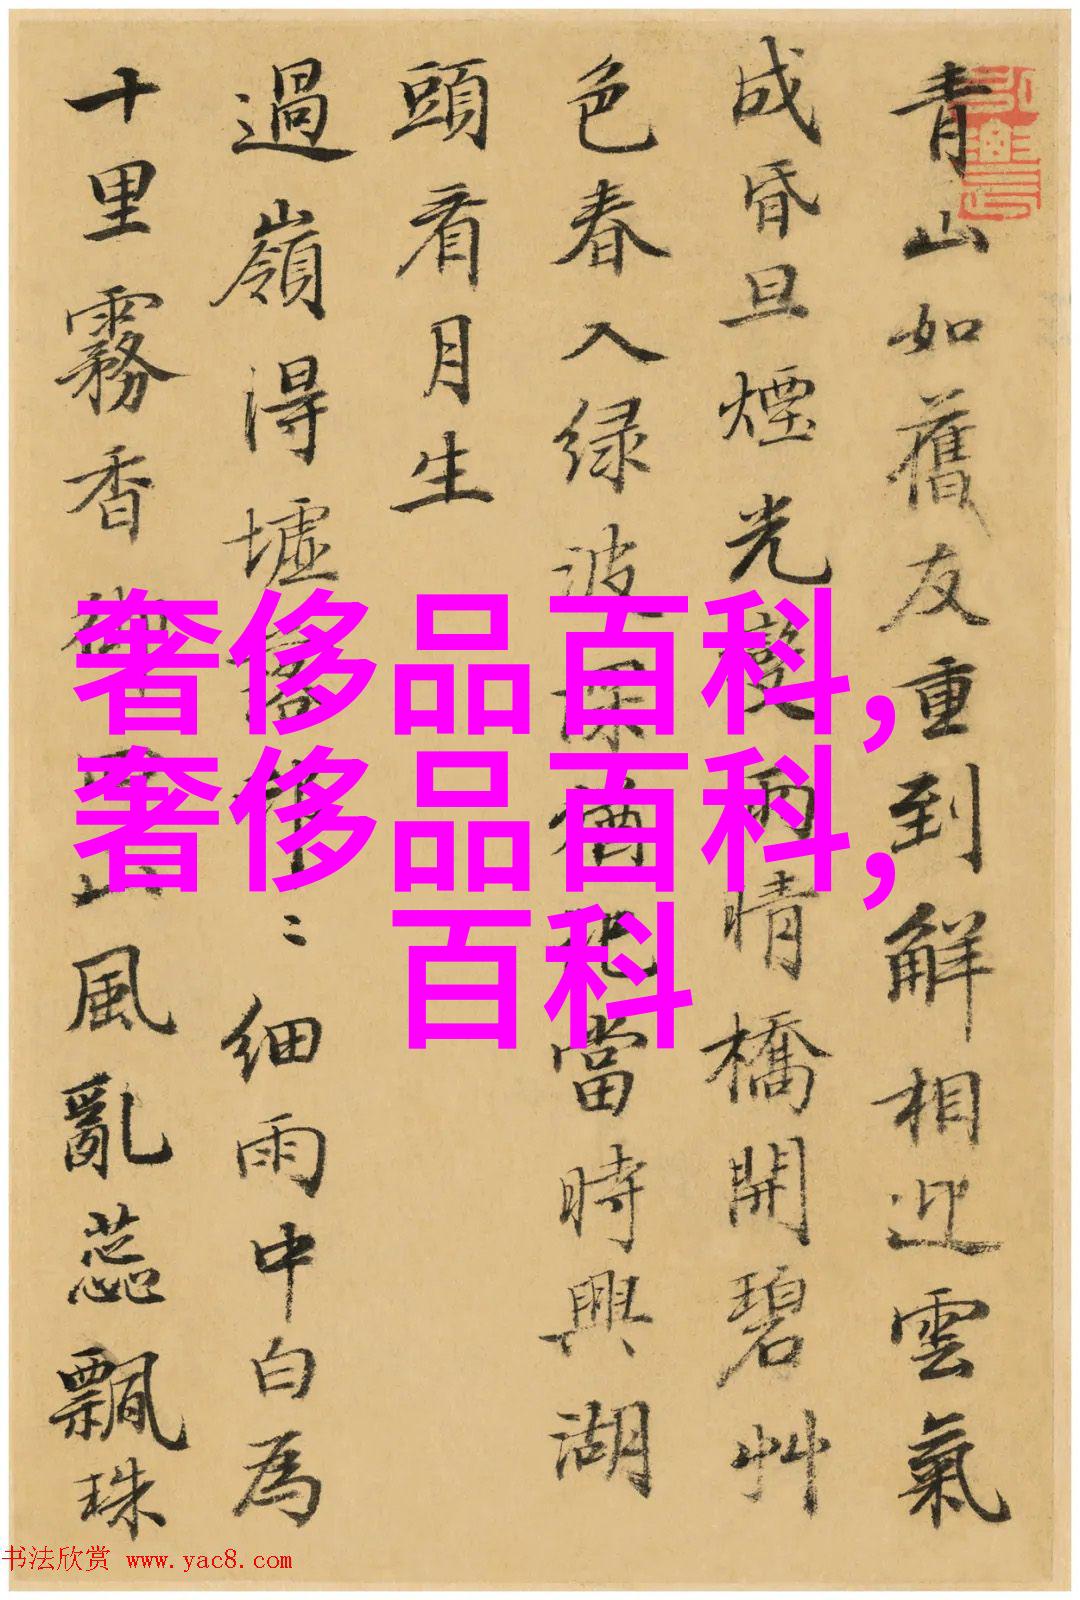 青山如舊友重到解相迎雲氣
成昏旦煙光變雨晴橋開碧艸
色春入绿波深猶當時興湖
頭看月生
過嶺得墟細雨中白為
十里霧香山風亂蕊飄珠
奢侈品百科,
奢侈品百科,
百科
书法欣赏 www.yac8.com